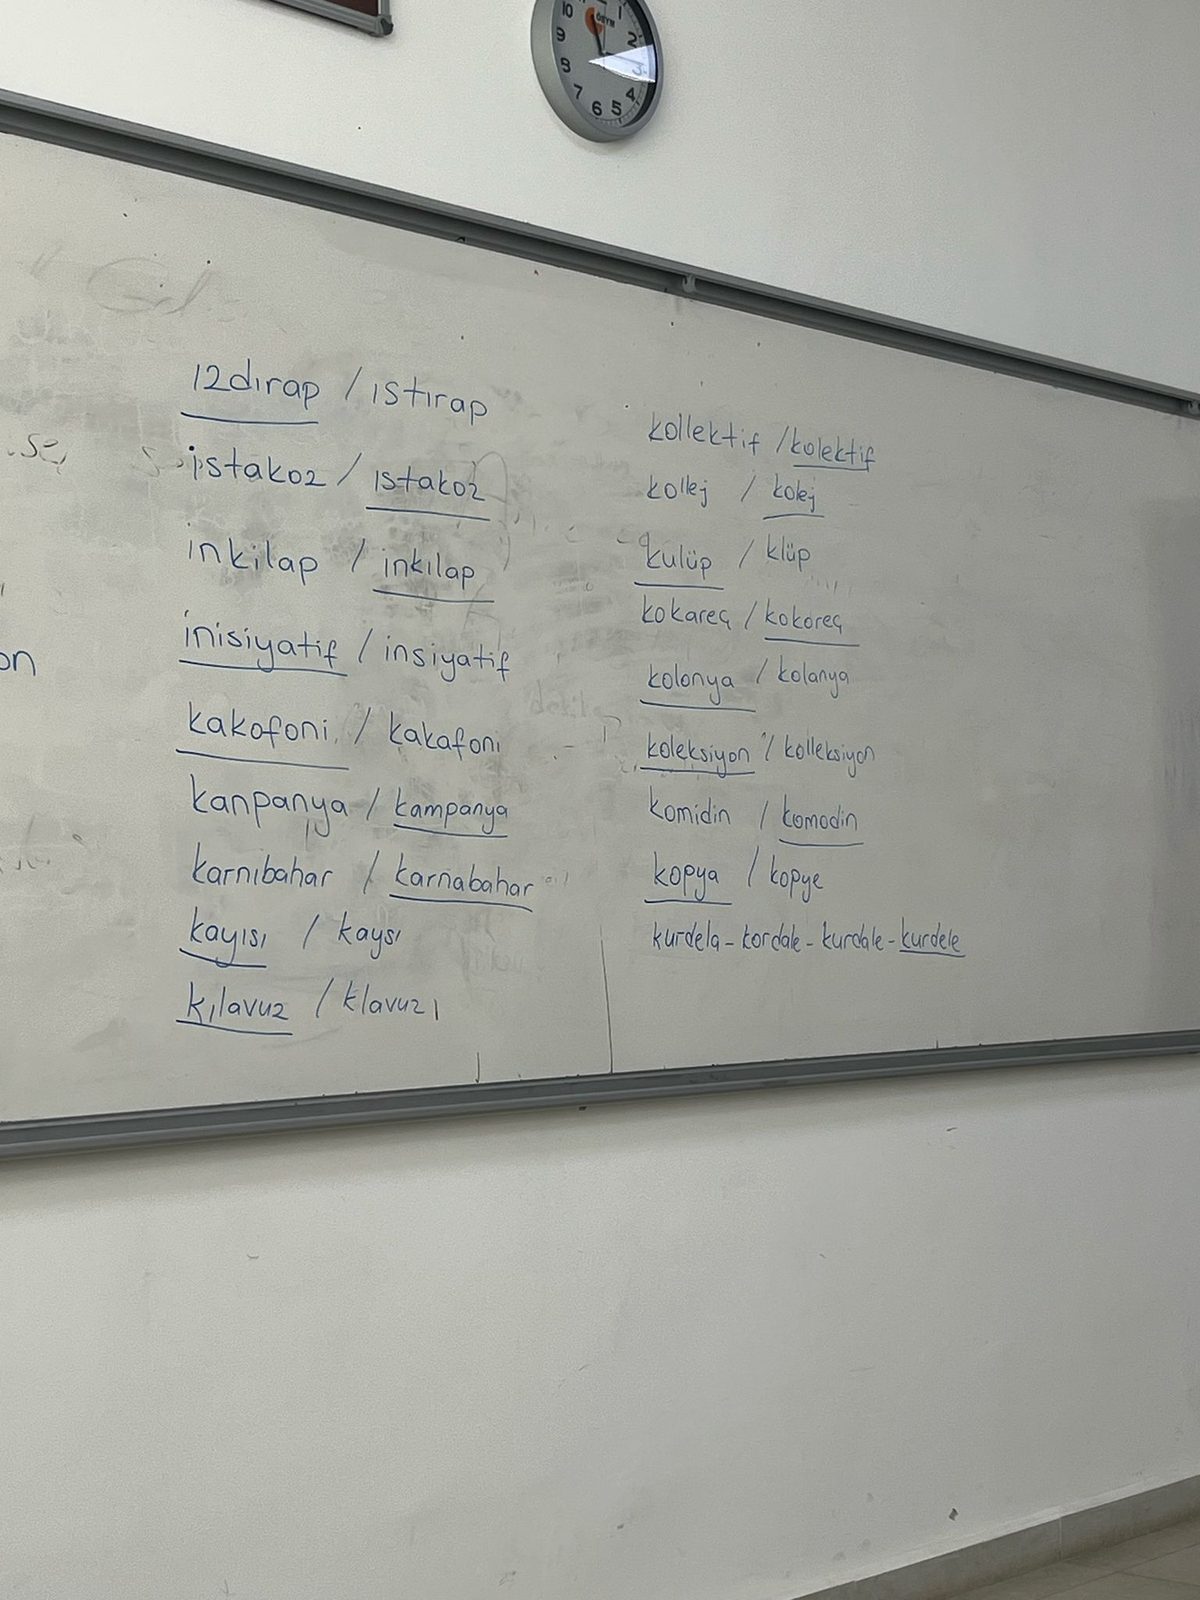 10 1
ÖSYM
9 2
8 3
7 6 5 4
ızdırap / ıstırap
istakoz / ıstakoz
inkilap / inkılap
inisiyatif / insiyatif
kakofoni / kakafoni
kanpanya / kampanya
karnıbahar / karnabahar
kayısı / kaysı
kılavuz / klavuz
on
kollektif / kolektif
kollej / kolej
kulüp / klüp
kokareç / kokoreç
kolonya / kolanya
koleksiyon / kolleksiyon
komidin / komodin
kopya / kopye
kurdela - kordale - kurdale - kurdele